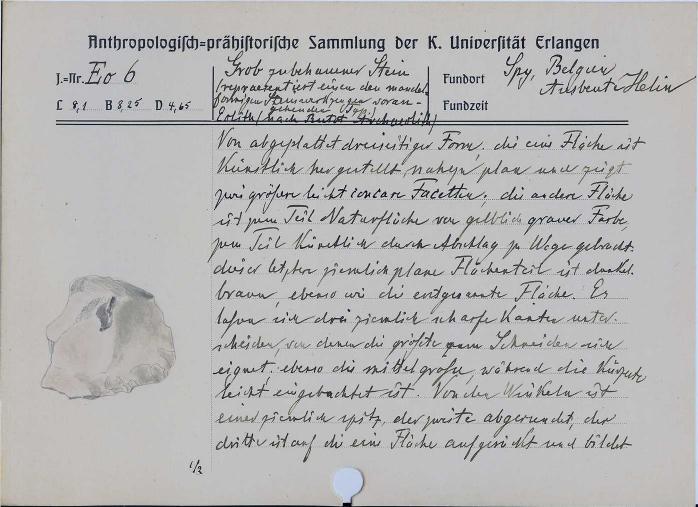 Anthropologisch=prähistorische Sammlung der K. Universität Erlangen
J.=Nr. Eo 6
L 8,1 B 8,25 D 4,65
Grob zubehauener Stein
(repraesentiert einen den mandel
förmigen Steinwerkzeugen voran-
gehenden Typ.)
Eolith (nach Rutot Archaeolith)
Fundort Spy, Belgien
Ausbeute Helin
Fundzeit
Von abgeplattet dreiseitiger Form, die eine Fläche ist
Künstlich hergestellt, nahezu plan und zeigt
zwei größere leicht concave Facetten. die andere Fläche
ist zum Teil Naturfläche von gelblich grauer Farbe,
zum Teil Künstlich durch Abschlag zu Wege gebracht.
dieser letztere ziemlich plane Flächenteil ist dunkel.
braun, ebenso wie die erstgenannte Fläche. Es
lassen sich drei ziemlich scharfe Kanten unter.
scheiden, von denen die größte zum Schneiden sich
eignet, ebenso die mittelgroße, während die Kürzeste
leicht eingebuchtet ist. Von den Winkeln ist
einer ziemlich spitz, der zweite abgerundet, der
dritte ist auf die eine Fläche aufgerückt und bildet
1/2